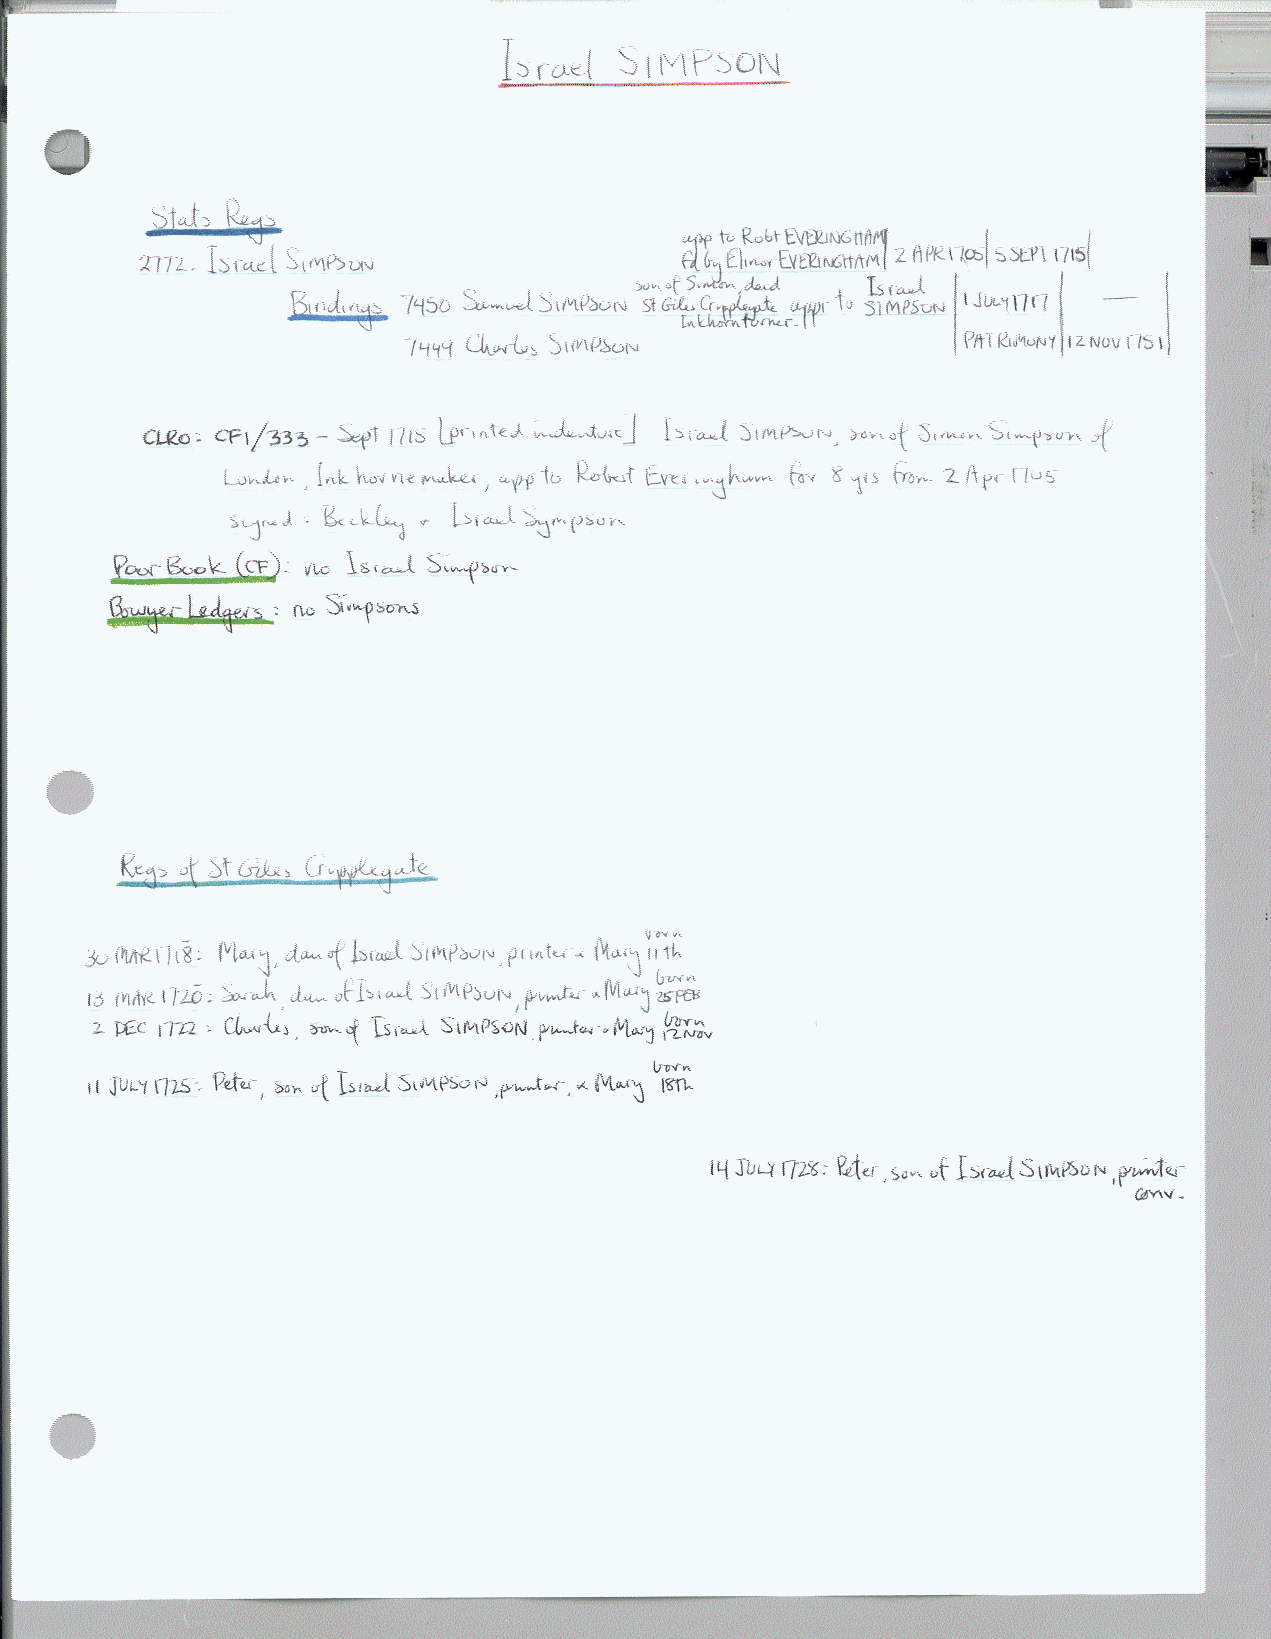 Israel SIMPSON
Stats Regs
app to Robt EVERINGHAM
2772. Israel SIMPSON fd by Elinor EVERINGHAM 2 APR 1705 5 SEPT 1715
son of Simon, decd Israel
Bindings 7450 Samuel SIMPSON St Giles Cripplegate appr to SIMPSON 1 JULY 1717 —
Inkhornturner.
7449 Charles SIMPSON PATRIMONY 12 NOV 1751
CLRO: CF1/333 - Sept 1715 [printed indenture] Israel SIMPSON, son of Simon Simpson of
London, Inkhornemaker, app to Robert Everingham for 8 yrs from 2 Apr 1705
signed: Beckley + Israel Sympson
Poor Book (CF): no Israel Simpson
Bowyer Ledgers: no Simpsons
Regs of St Giles Cripplegate
born
30 MAR 1718: Mary, dau of Israel SIMPSON, printer & Mary 11th
born
13 MAR 1720: Sarah, dau of Israel SIMPSON, printer & Mary 25 FEB
2 DEC 1722: Charles, son of Israel SIMPSON, printer & Mary born
12 NOV
born
11 JULY 1725: Peter, son of Israel SIMPSON, printer, & Mary 18th
14 JULY 1728: Peter, son of Israel SIMPSON, printer
conv.